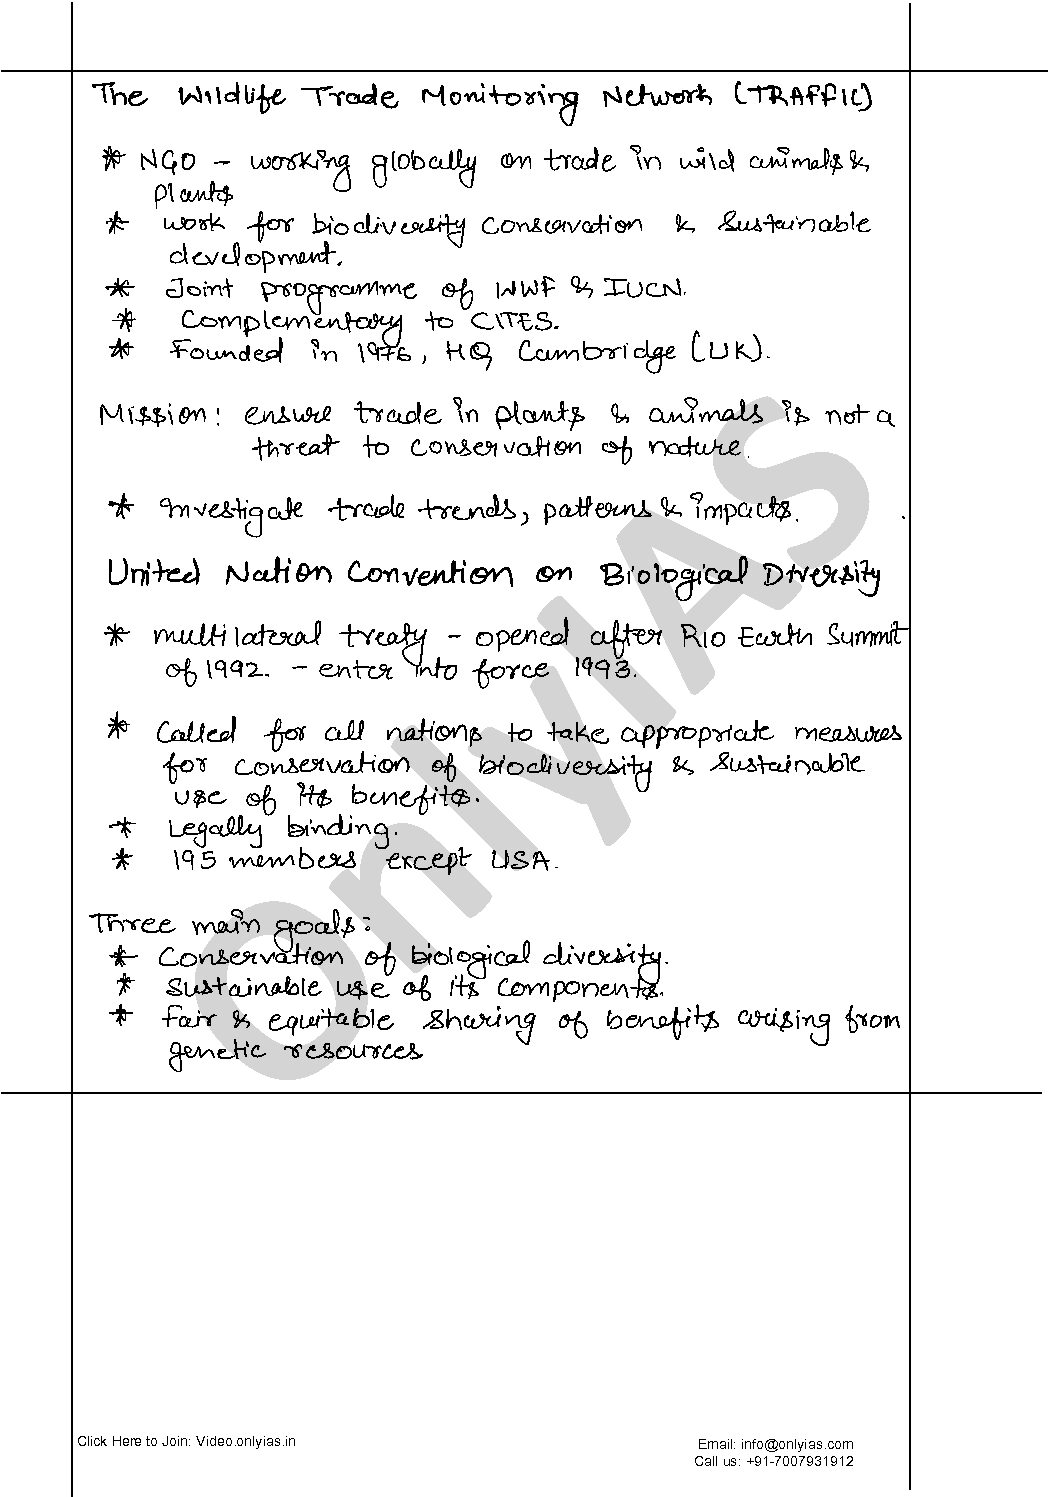 The Wildlife Trade Monitoring Network (TRAFFIC)
* NGO - working globally on trade in wild animals &
plants
* work for biodiversity conservation & sustainable
development.
* Joint programme of WWF & IUCN.
* Complementary to CITES.
* Founded in 1976, HQ Cambridge (UK).
Mission: ensure trade in plants & animals is not a
threat to conservation of nature.
* Investigate trade trends, patterns & impacts.
United Nation Convention on Biological Diversity
* multilateral treaty - opened after Rio Earth Summit
of 1992. - enter into force 1993.
* Called for all nations to take appropriate measures
for conservation of biodiversity & sustainable
use of its benefits.
* Legally binding.
* 195 members except USA.
Three main goals:
* Conservation of biological diversity.
* Sustainable use of its components.
* Fair & equitable sharing of benefits arising from
genetic resources
OnlyIAS
Click Here to Join: Video.onlyias.in
Email: info@onlyias.com
Call us: +91-7007931912